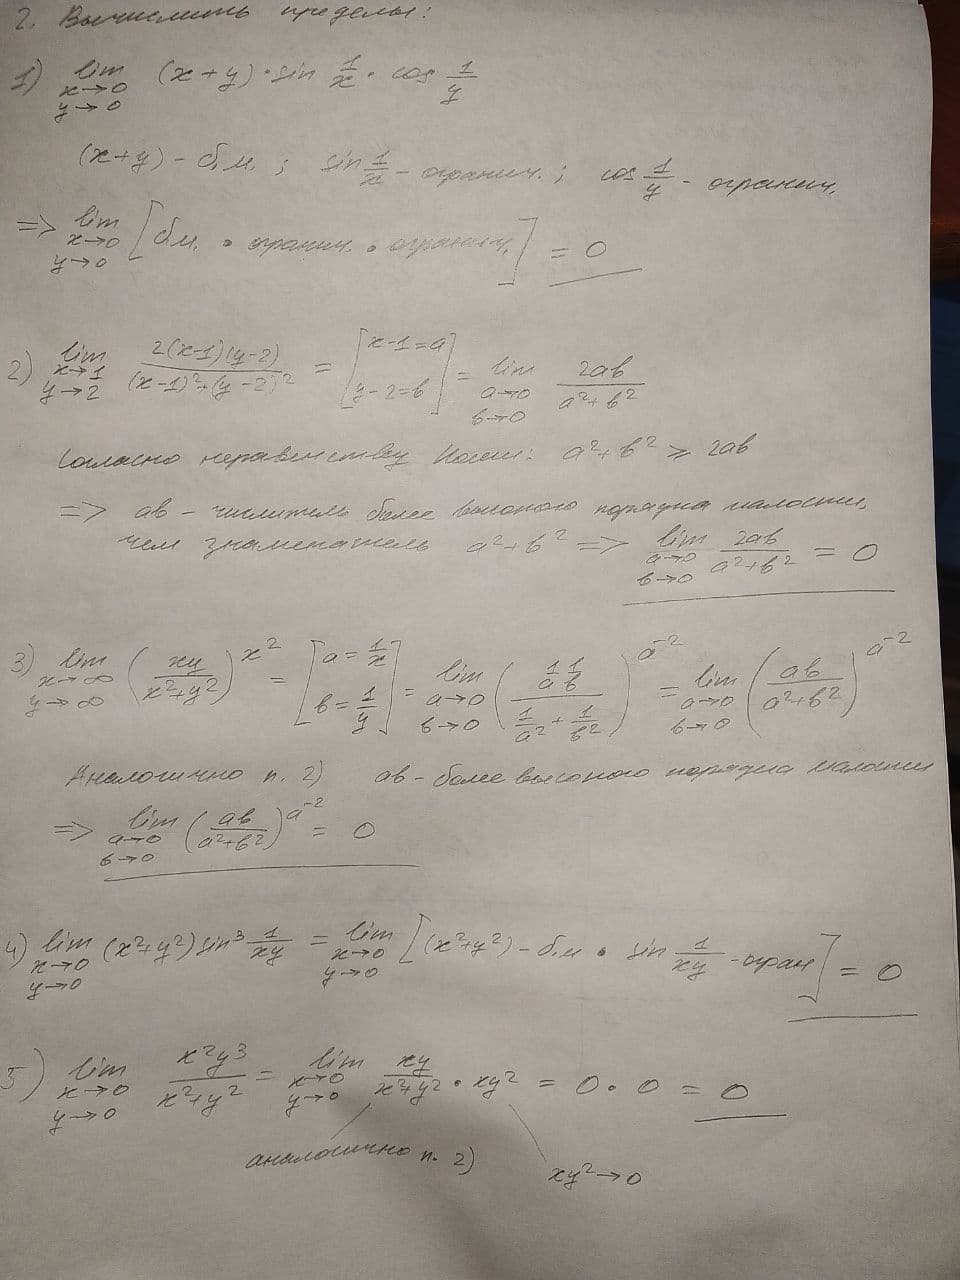 2. Вычислить пределы:
1) lim x→0 y→0 (x+y)·sin 1/x · cos 1/y
(x+y) – б.м. ; sin 1/x – огранич. ; cos 1/y – огранич.
=> lim x→0 y→0 [б.м. · огранич. · огранич.] = 0
2) lim x→1 y→2 2(x-1)(y-2)/((x-1)²+(y-2)²) = [x-1=a y-2=b] = lim a→0 b→0 2ab/(a²+b²)
Согласно неравенству Коши: a²+b² ≥ 2ab
=> ab – числитель более высокого порядка малости,
чем знаменатель a²+b² => lim a→0 b→0 2ab/(a²+b²) = 0
3) lim x→∞ y→∞ (xy/(x²+y²))^x² = [a=1/x b=1/y] = lim a→0 b→0 ((1/a 1/b)/(1/a² + 1/b²))^a⁻² = lim a→0 b→0 (ab/(a²+b²))^a⁻²
Аналогично п. 2) ab – более высокого порядка малости
=> lim a→0 b→0 (ab/(a²+b²))^a⁻² = 0
4) lim x→0 y→0 (x²+y²) sin³ 1/xy = lim x→0 y→0 [(x²+y²) – б.м · sin 1/xy – огран] = 0
5) lim x→0 y→0 x²y³/(x²+y²) = lim x→0 y→0 xy/(x²+y²) · xy² = 0·0 = 0
аналогично п. 2) xy²→0